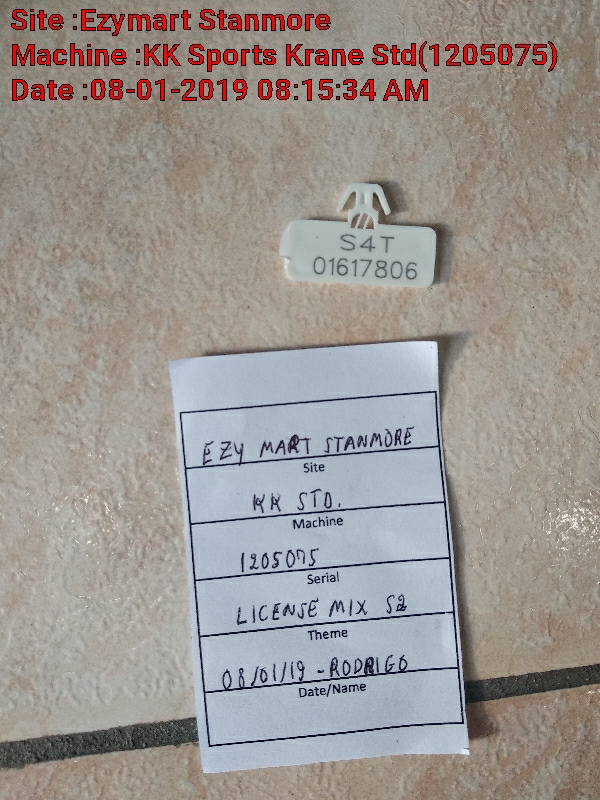 Site :Ezymart Stanmore
Machine :KK Sports Krane Std(1205075)
Date :08-01-2019 08:15:34 AM
S4T
01617806
EZY MART STANMORE
Site
KK STD.
Machine
1205075
Serial
LICENSE MIX S2
Theme
08/01/19 - RODRIGO
Date/Name